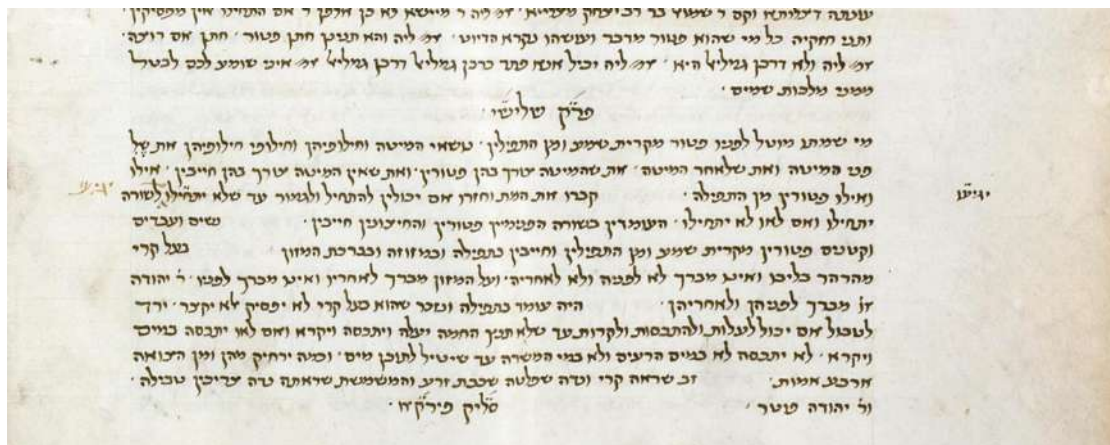 עובדה דצלותא וקם ר שמואל בר רב יצחק מצלייא · אמ' ליה ר מיישא ולא כן אלפן ר' אם התחילו אין מפסיקין ·
ותני חזקיה כל מי שהוא פטור מדבר ועושהו נקרא הדיוט · אמ' ליה והא תנינן חתן פטור · חתן אם רוצה ·
אמ' ליה ולא דרבן גמליאל היא · אמ' ליה יכיל אנא פתר כרבן גמליאל דרבן גמליאל אמ' איני שומע לכם לבטל
ממני מלכות שמים ·
פרק שלישי ·
מי שמתו מוטל לפניו פטור מקרית שמע ומן התפילין · נושאי המיטה וחילופיהן וחילופי חילופיהן את של
פני המיטה ואת שלאחר המיטה · את שהמיטה צורך בהן פטורין · ואת שאין המיטה צורך בהן חייבין · אילו
ואילו פטורין מן התפילה · קברו את המת וחזרו אם יכולין להתחיל ולגמור עד שלא יתחילו לשורה
יתחילו ואם לאו לא יתחילו · העומדין בשורה הפנמיין פטורין והחיצונין חייבין · נשים ועבדים
וקטנים פטורין מקרית שמע ומן התפילין וחייבין בתפילה ובמזוזה ובברכת המזון בעל קרי
מהרהר בליבו ואינו מברך לא לפניה ולא לאחריה · ועל המזון מברך לאחריו ואינו מברך לפניו · ר' יהודה
או' מברך לפניהן ולאחריהן · היה עומד בתפילה ונזכר שהוא בעל קרי לא יפסיק אלא יקצר · ירד
לטבול אם יכול לעלות ולהתכסות ולקרות עד שלא תנץ החמה יעלה ויתכסה ויקרא ואם לאו יתכסה במים
ויקרא · לא יתכסה לא במים הרעים ולא במי המשרה עד שיטיל לתוכן מים · וכמה ירחיק מהן ומן הצואה
ארבע אמות · זב שראה קרי ונדה שפלטה שכבת זרע והמשמשת שראתה נדה צריכין טבילה ·
ור' יהודה פוטר · סליק פירקא ·